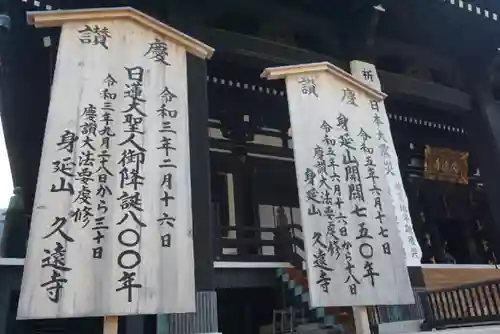 慶讃
令和三年二月十六日
日蓮大聖人御降誕八〇〇年
令和三年九月二十八日から三十日
慶讃大法要厳修
身延山 久遠寺
慶讃
令和五年六月十七日
身延山開闢七五〇年
令和五年六月十六日から十八日
慶讃大法要厳修
身延山 久遠寺
祈
日本大震災